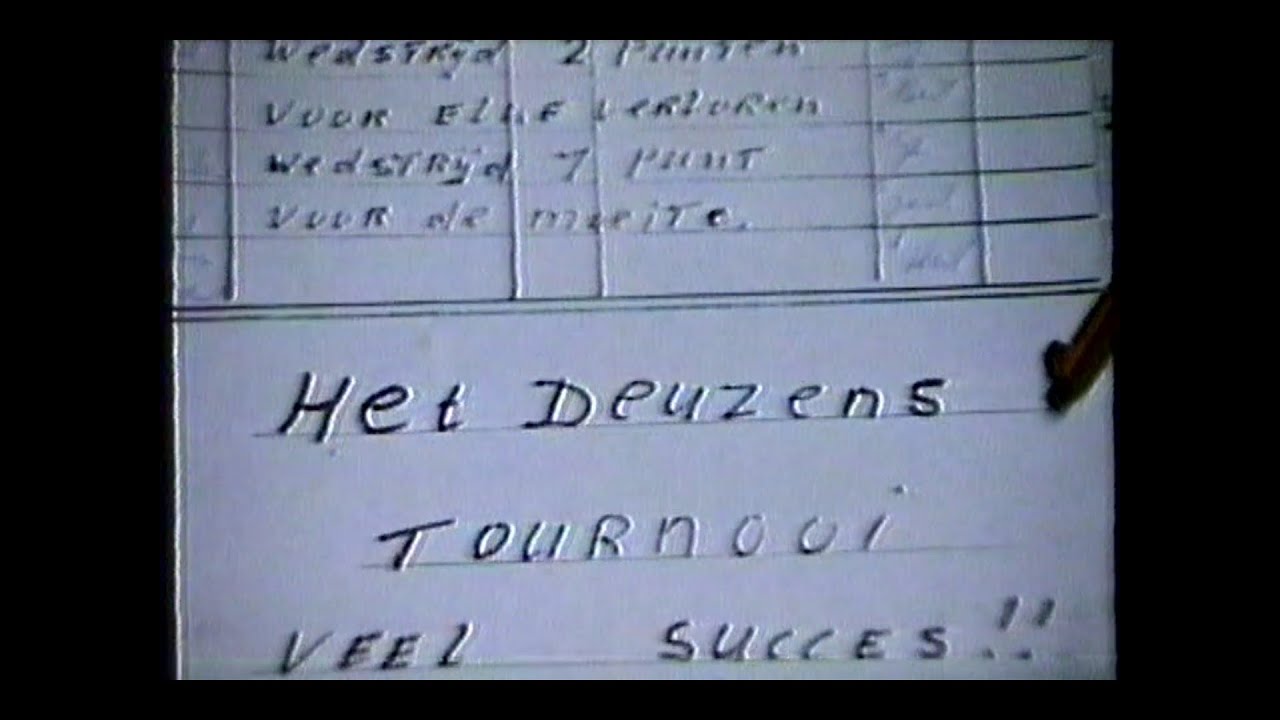 WedSTRijd 2 PunTen
VOOR ElkE VerlOREn
WedSTRijd 1 PunT
VOOR de moeiTe.
Het Deuzens
TOURnOOi
VEEl SUCCES!!